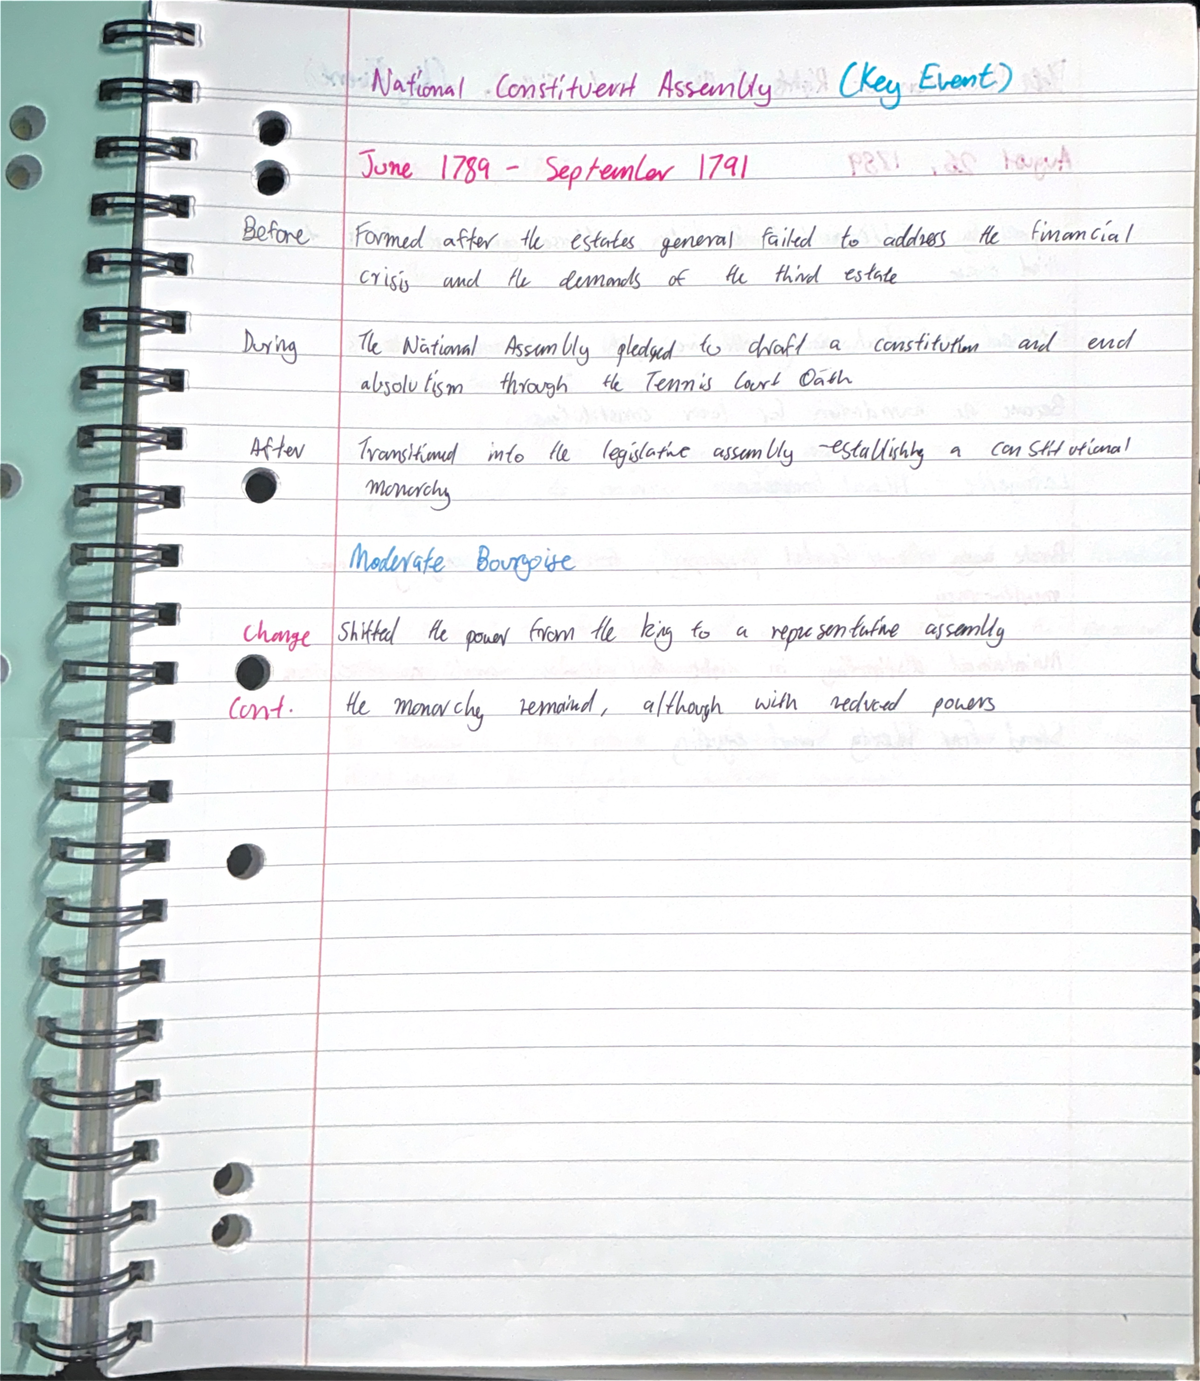 National Constituent Assembly (Key Event)
June 1789 - September 1791
Before Formed after the estates general failed to address the financial
crisis and the demands of the third estate
During The National Assembly pledged to draft a constitution and end
absolutism through the Tennis Court Oath
After Transitioned into the legislative assembly establishing a constitutional
monarchy
Moderate Bourgoise
Change Shifted the power from the king to a representative assembly
Cont. the monarchy remained, although with reduced powers